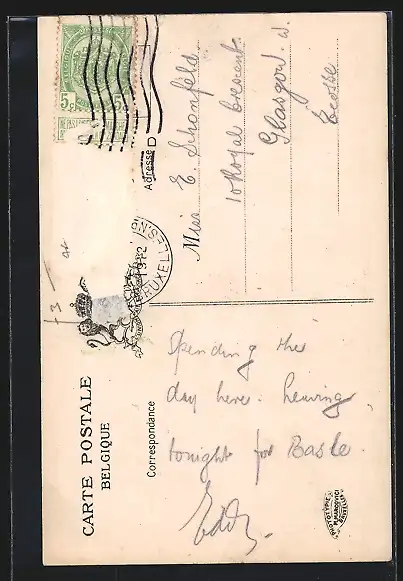 CARTE POSTALE
BELGIQUE
Correspondance
Adresse
Spending the
day here. leaving
tonight for Basle
Eddy.
Miss E. Schonfeld
10 Royal Crescent
Glasgow. W.
Ecosse
BRUXELLES
1912
5c 5c
PHOTOTYPIE
BRUXELLES
+3-